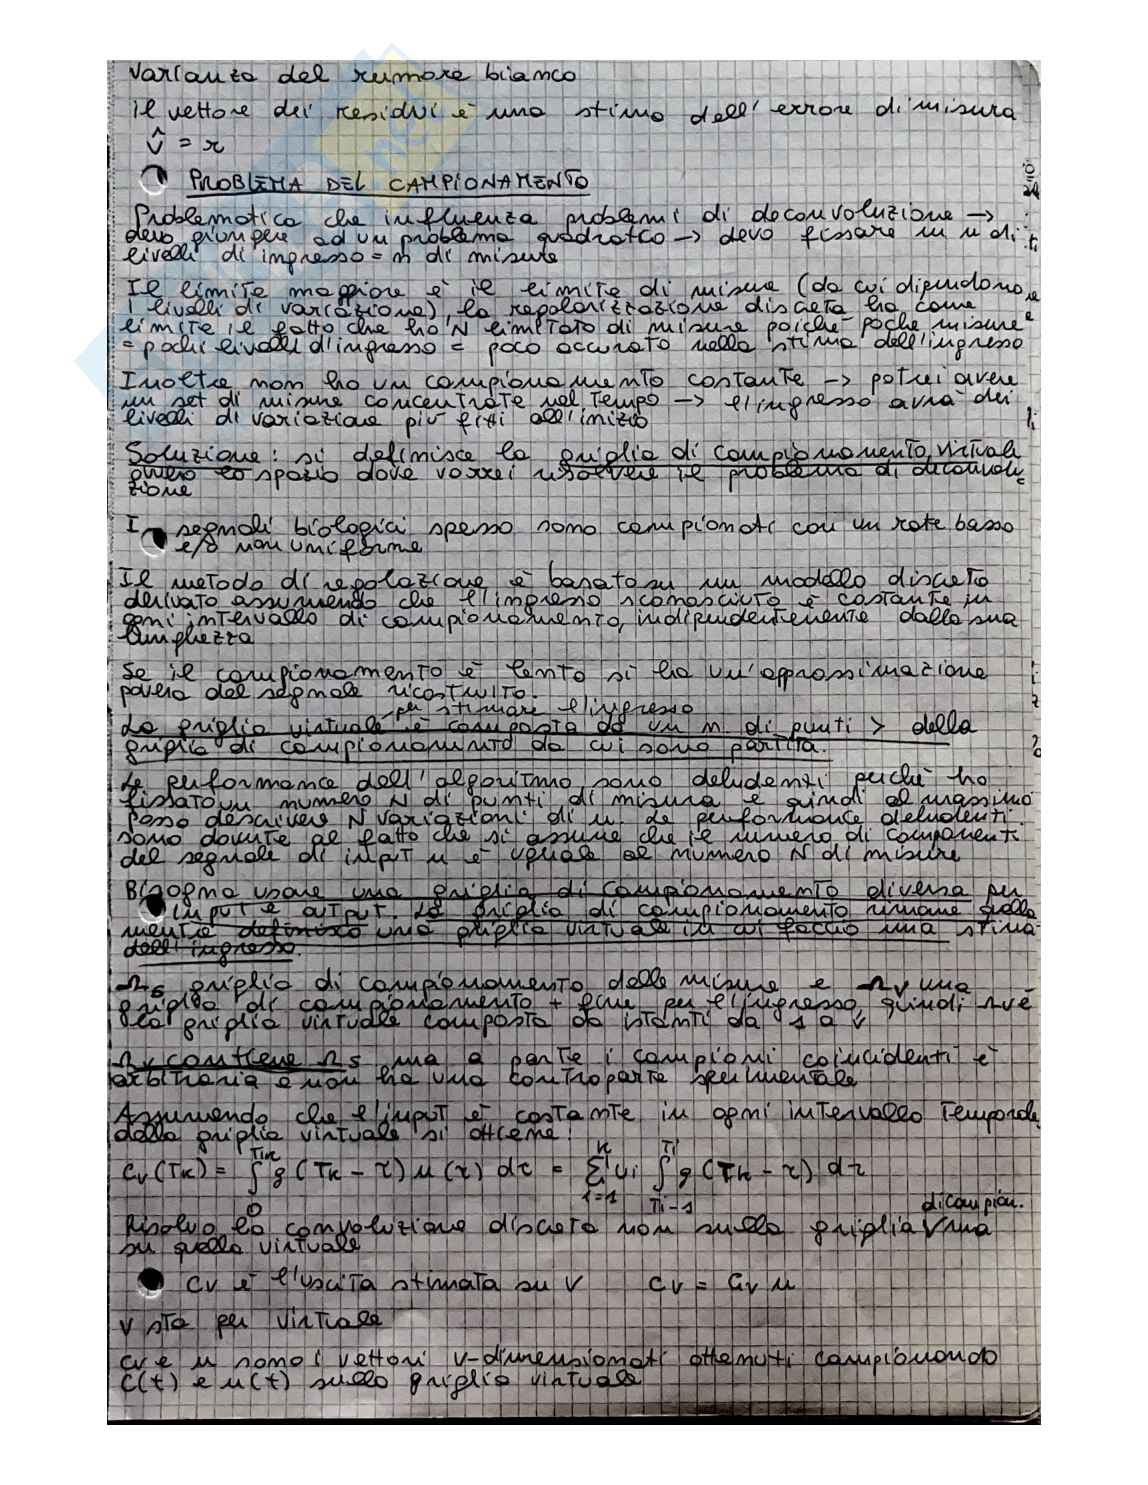 varianza del rumore bianco
il vettore dei residui è una stima dell'errore di misura
v̂ = r
PROBLEMA DEL CAMPIONAMENTO
Problematica che influenza problemi di deconvoluzione →
devo giungere ad un problema quadrato → devo fissare un n di
livelli di ingresso = n di misure
Il limite maggiore è il limite di misure (da cui dipendono
i livelli di variazione), la regolarizzazione discreta ha come
limite il fatto che ho N limitato di misure poiché poche misure
= pochi livelli d'ingresso = poco accurato nella stima dell'ingresso
Inoltre non ho un campionamento costante → potrei avere
un set di misure concentrate nel tempo → l'ingresso avrà dei
livelli di variazione più fitti all'inizio
Soluzione: si definisce la griglia di campionamento virtuale
ovvero lo spazio dove vorrei risolvere il problema di deconvolu-
zione
I segnali biologici spesso sono campionati con un rate basso
e/o non uniforme
Il metodo di regolazione è basato su un modello discreto
derivato assumendo che l'ingresso sconosciuto è costante in
ogni intervallo di campionamento, indipendentemente dalla sua
lunghezza
Se il campionamento è lento si ha un'approssimazione
povera del segnale ricostruito.
per stimare l'ingresso
La griglia virtuale è composta da un n. di punti > della
griglia di campionamento da cui sono partita.
Le performance dell'algoritmo sono deludenti perché ho
fissato un numero N di punti di misura e quindi al massimo
posso descrivere N variazioni di u. Le performance deludenti
sono dovute al fatto che si assume che il numero di componenti
del segnale di input u è uguale al numero N di misure
Bisogna usare una griglia di campionamento diversa per
input e output. La griglia di campionamento rimane quella
mentre definisco una griglia virtuale in cui faccio una stima
dell'ingresso.
Ωs griglia di campionamento delle misure e Ωv una
griglia di campionamento + fine per l'ingresso, quindi Ωv è
la griglia virtuale composta da istanti da 1 a v
Ωv contiene Ωs ma a parte i campioni coincidenti è
arbitraria e non ha una controparte sperimentale
Assumendo che l'input è costante in ogni intervallo temporale
della griglia virtuale si ottiene:
cv(Tk) = ∫₀^Tk g(Tk - τ) u(τ) dτ = Σ_{i=1}^{k} ui ∫_{Ti-1}^{Ti} g(Tk - τ) dτ
di campion.
Risolvo la convoluzione discreta non sulla griglia ma
su quella virtuale
cv è l'uscita stimata su v cv = Gv u
v sta per virtuale
cv e u sono i vettori v-dimensionati ottenuti campionando
c(t) e u(t) sulla griglia virtuale